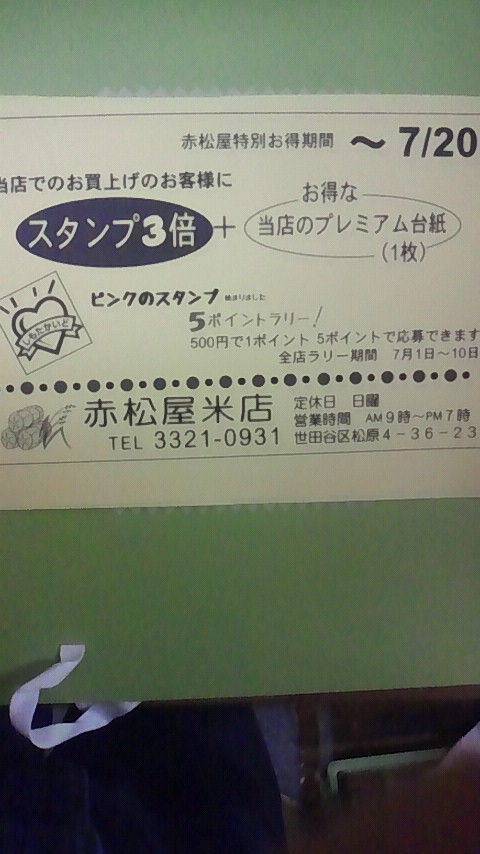 赤松屋特別お得期間 ～ 7/20
当店でのお買上げのお客様に
スタンプ3倍 + お得な
当店のプレミアム台紙
(1枚)
ピンクのスタンプ 始まりました
5ポイントラリー!
しもたかいど
500円で1ポイント 5ポイントで応募できます
全店ラリー期間 7月1日～10日
赤松屋米店
TEL 3321-0931
定休日 日曜
営業時間 AM9時～PM7時
世田谷区松原4-36-23